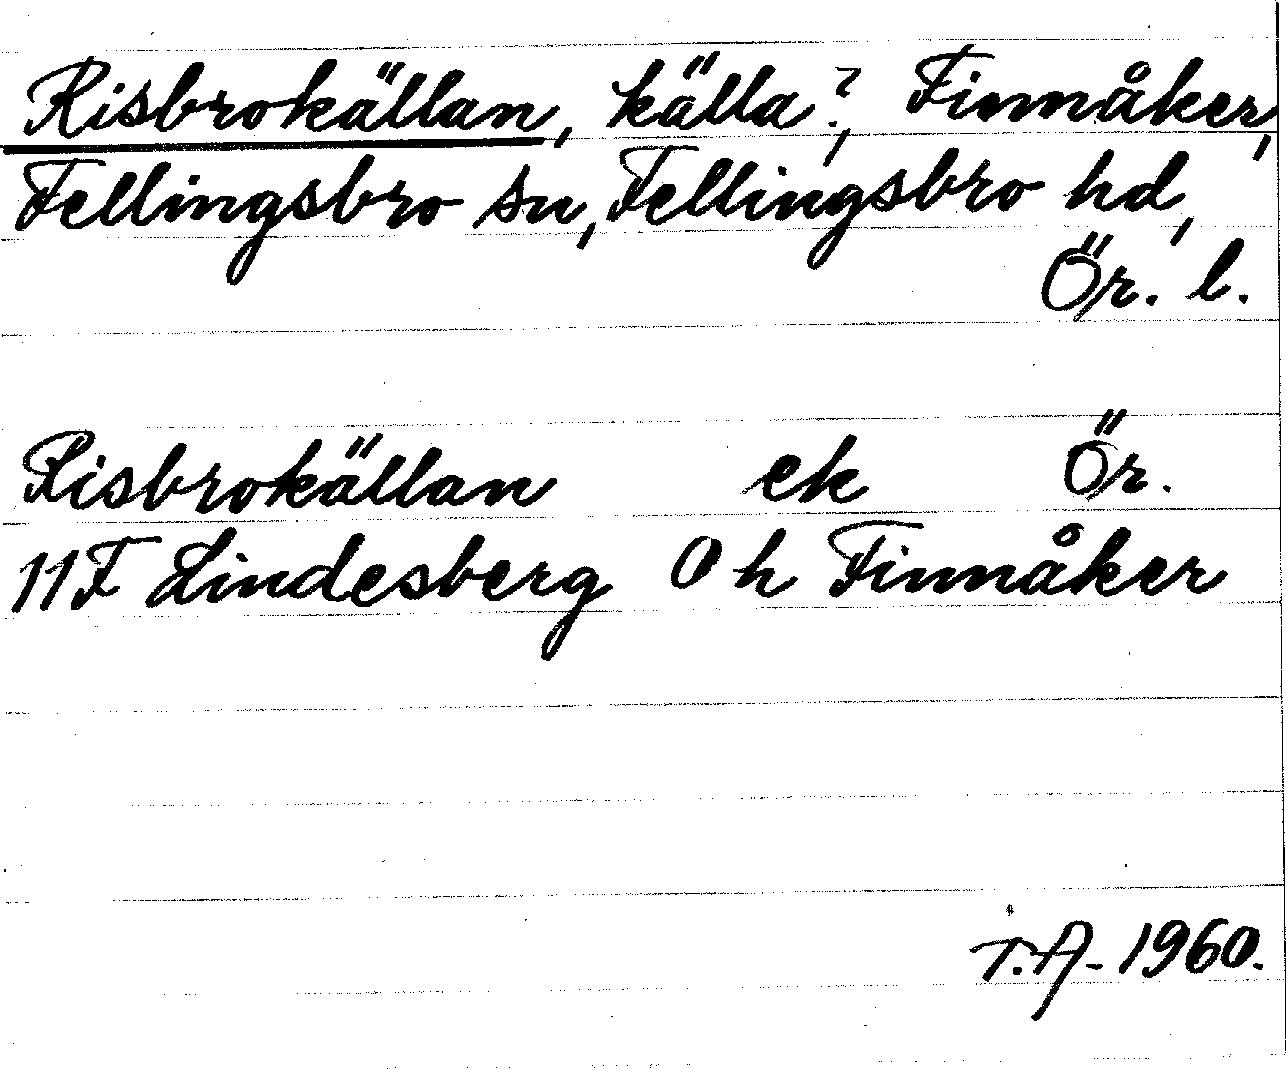 Risbrokällan, källa?, Finnåker,
Fellingsbro sn, Fellingsbro hd,
Ör. l.
Risbrokällan ek Ör.
11F Lindesberg 0 h Finnåker
T.A. 1960.